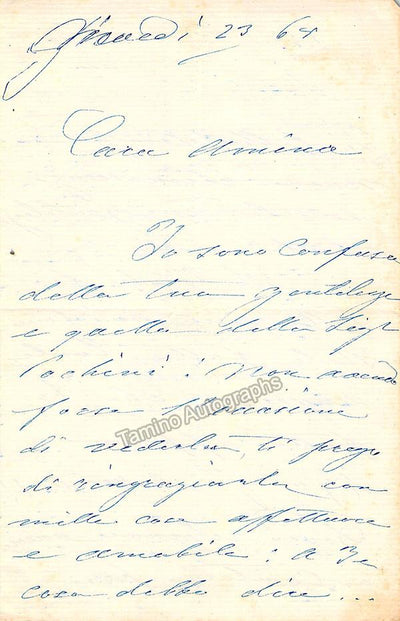 Giovedì 23 64
Cara Amina
Io sono confusa
della tua gentilezza
e quella della Sigr
Pochini: non avendo
forse l'occasione
di vederla, ti prego
di ringraziarla con
mille cose affettuose
e amabili: a Te
cosa debbo dire...
Tamino Autographs